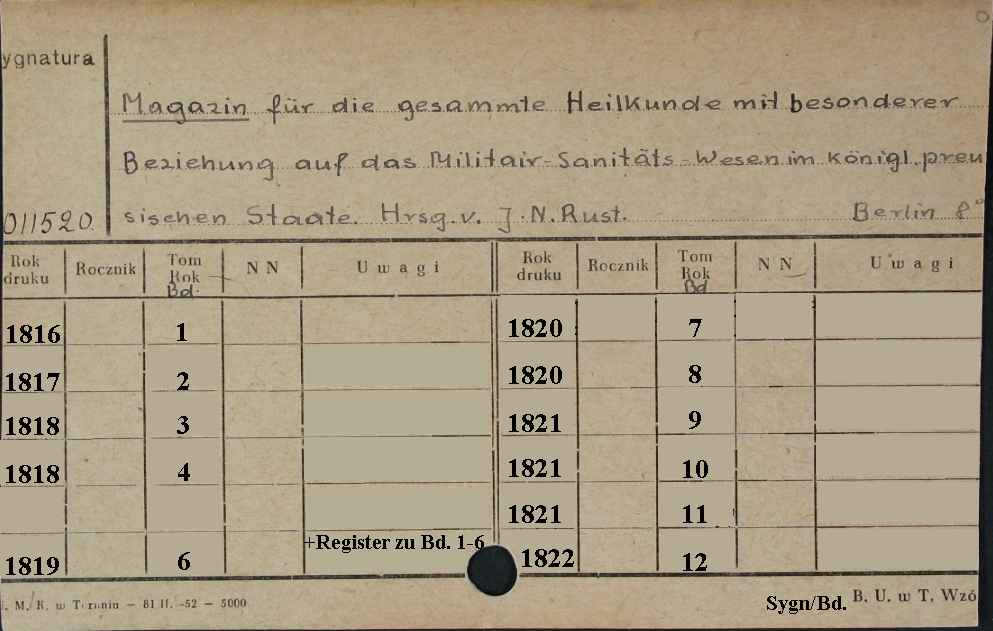 ygnatura
Magazin für die gesammte Heilkunde mit besonderer
Beziehung auf das Militair-Sanitäts-Wesen im königl. preu
011520. sischen Staate. Hrsg. v. J. N. Rust. Berlin 8°
Rok druku Rocznik Tom Rok Bd. N N Uwagi Rok druku Rocznik Tom Rok Bd N N Uwagi
1816 1 1820 7
1817 2 1820 8
1818 3 1821 9
1818 4 1821 10
1821 11
1819 6 +Register zu Bd. 1-6 1822 12
M. K. w Toruniu — 81 II. -52 — 5000 Sygn/Bd. B. U. w T. Wzó